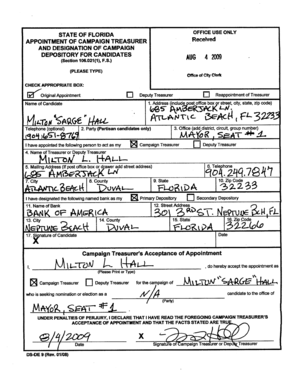 STATE OF FLORIDA
APPOINTMENT OF CAMPAIGN TREASURER
AND DESIGNATION OF CAMPAIGN
DEPOSITORY FOR CANDIDATES
(Section 106.021(1), F.S.)
(PLEASE TYPE)
OFFICE USE ONLY
Received
AUG 4 2009
Office of City Clerk
CHECK APPROPRIATE BOX:
Original Appointment Deputy Treasurer Reappointment of Treasurer
Name of Candidate
MILTON "SARGE" HALL
1. Address (include post office box or street, city, state, zip code)
685 AMBERJACK LN,
ATLANTIC BEACH, FL 32233
Telephone (optional)
904 651-8769
2. Party (Partisan candidates only)
3. Office (add district, circuit, group number)
MAYOR, SEAT #1
I have appointed the following person to act as my X Campaign Treasurer Deputy Treasurer
4. Name of Treasurer or Deputy Treasurer
MILTON L. HALL
5. Mailing Address (if post office box or drawer add street address)
685 AMBERJACK LN
6. Telephone
904.249.7847
7. City
ATLANTIC BEACH
8. County
DUVAL
9. State
FLORIDA
10. Zip Code
32233
I have designated the following named bank as my X Primary Depository Secondary Depository
11. Name of Bank
BANK OF AMERICA
12. Street Address
301 3RD ST. NEPTUNE BCH, FL
13. City
NEPTUNE BEACH
14. County
DUVAL
15. State
FLORIDA
16. Zip Code
32266
17. Signature of Candidate
X
Date
Campaign Treasurer's Acceptance of Appointment
I, MILTON L HALL, do hereby accept the appointment as
(Please Print or Type)
X Campaign Treasurer Deputy Treasurer for the campaign of MILTON "SARGE" HALL
who is seeking nomination or election as a N/A candidate to the office of
(Party)
MAYOR, SEAT #1
UNDER PENALTIES OF PERJURY, I DECLARE THAT I HAVE READ THE FOREGOING CAMPAIGN TREASURER'S
ACCEPTANCE OF APPOINTMENT AND THAT THE FACTS STATED ARE TRUE.
8/4/2009
Date
X
Signature of Campaign Treasurer or Deputy Treasurer
DS-DE 9 (Rev. 01/08)